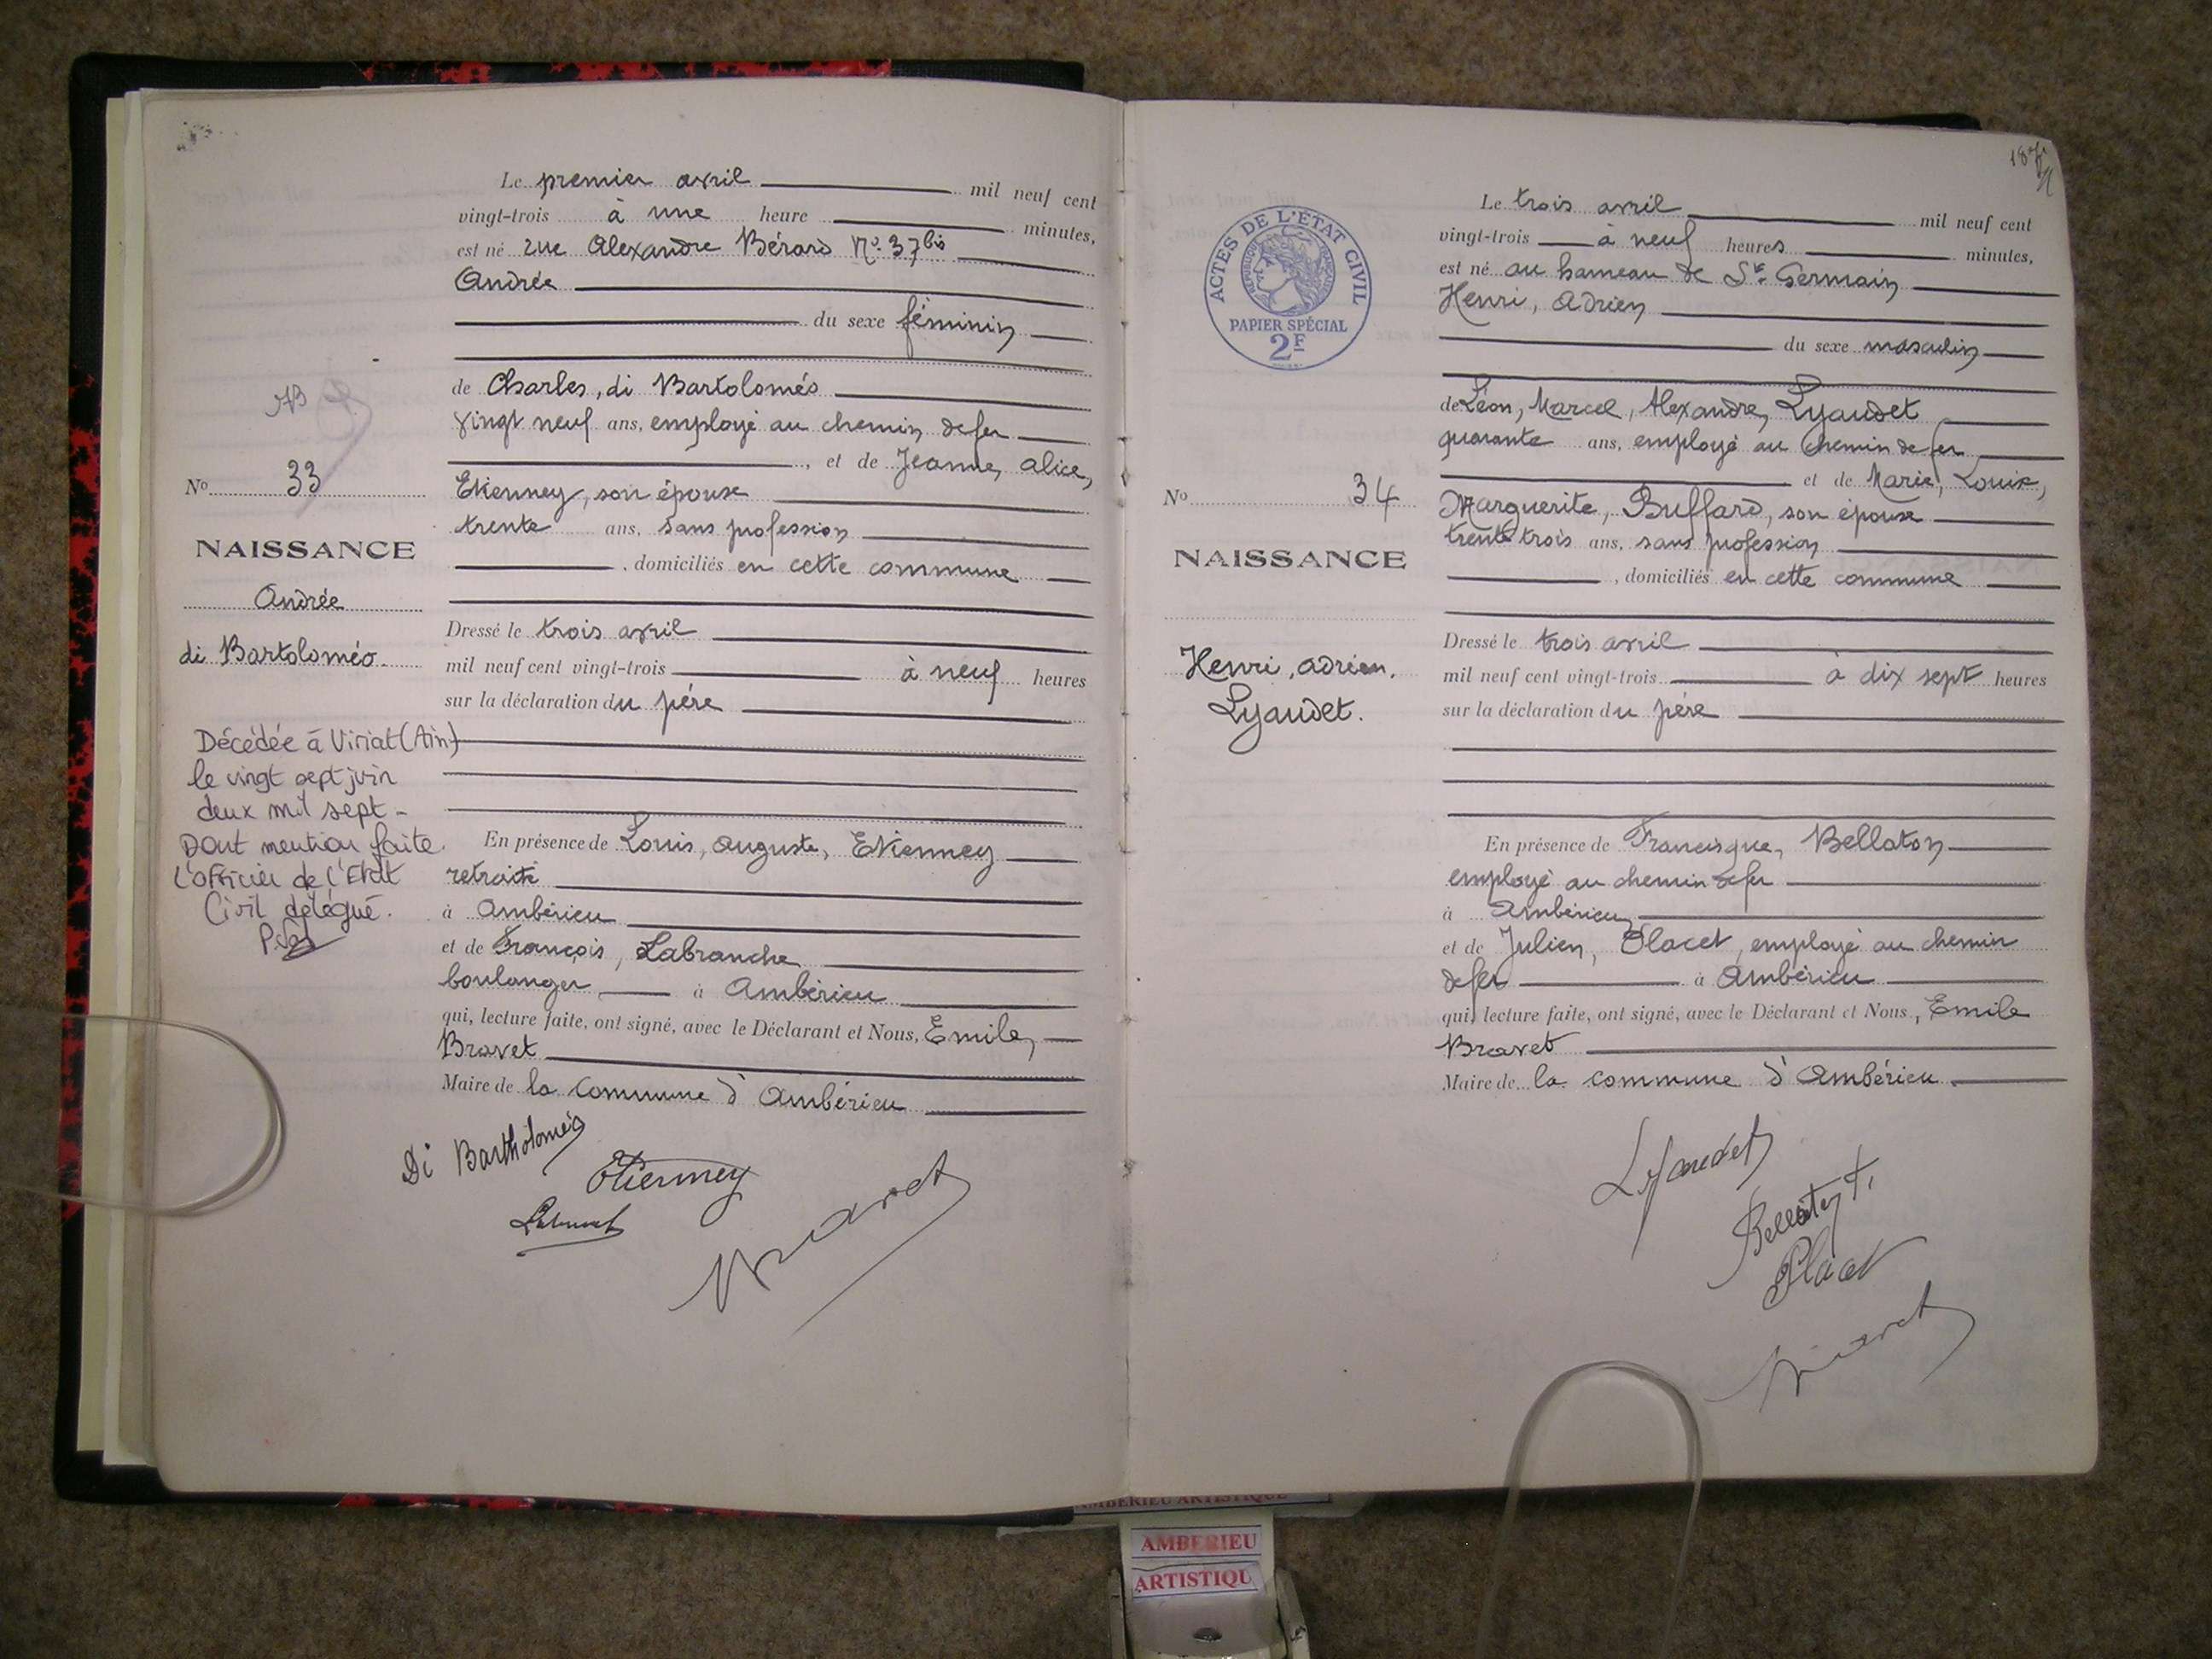 Le premier avril mil neuf cent
vingt-trois à une heure minutes,
est né rue Alexandre Bérard No. 37 bis
Andrée
du sexe féminin
de Charles, di Bartoloméo
vingt neuf ans, employé au chemin de fer
, et de Jeanne, Alice,
Etienney, son épouse
trente ans, sans profession
, domiciliés en cette commune
Dressé le trois avril
mil neuf cent vingt-trois à neuf heures
sur la déclaration du père
En présence de Louis, Auguste, Etienney
retraité
à Ambérieu
et de François, Labranche
boulanger à Ambérieu
qui, lecture faite, ont signé, avec le Déclarant et Nous, Emile,
Bravet
Maire de la Commune d'Ambérieu
Di Bartholoméo
Etienney
Bravet
No 33
NAISSANCE
Andrée
di Bartoloméo.
Décédée à Viriat (Ain)
le vingt sept juin
deux mil sept -
Dont mention faite.
L'officier de l'Etat
Civil délégué.
ACTES DE L'ÉTAT CIVIL
RÉPUBLIQUE FRANÇAISE
PAPIER SPÉCIAL
2F
Le trois avril mil neuf cent
vingt-trois à neuf heures minutes,
est né au hameau de St. Germain
Henri, Adrien
du sexe masculin
de Léon, Marcel, Alexandre, Lyaudet
quarante ans, employé au chemin de fer
et de Marie, Louise,
Marguerite, Buffard, son épouse
trente trois ans, sans profession
, domiciliés en cette commune
Dressé le trois avril
mil neuf cent vingt-trois à dix sept heures
sur la déclaration du père
En présence de Francisque, Bellaton
employé au chemin de fer
à Ambérieu
et de Julien, Placet, employé au chemin
de fer à Ambérieu
qui, lecture faite, ont signé, avec le Déclarant et Nous, Emile
Bravet
Maire de la commune d'Ambérieu
Lyaudet
Bellaton F.
Placet
Bravet
No 34
NAISSANCE
Henri, Adrien.
Lyaudet.
AMBERIEU ARTISTIQUE
AMBERIEU
ARTISTIQU